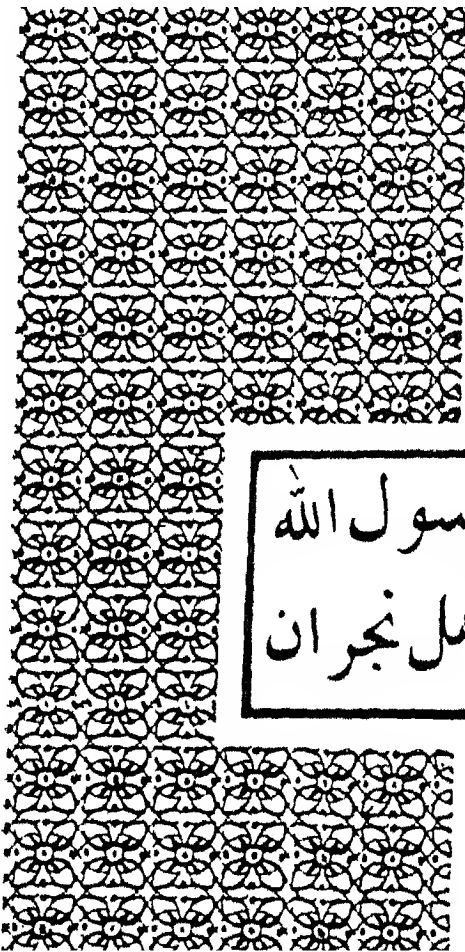 سول الله
هل نجران